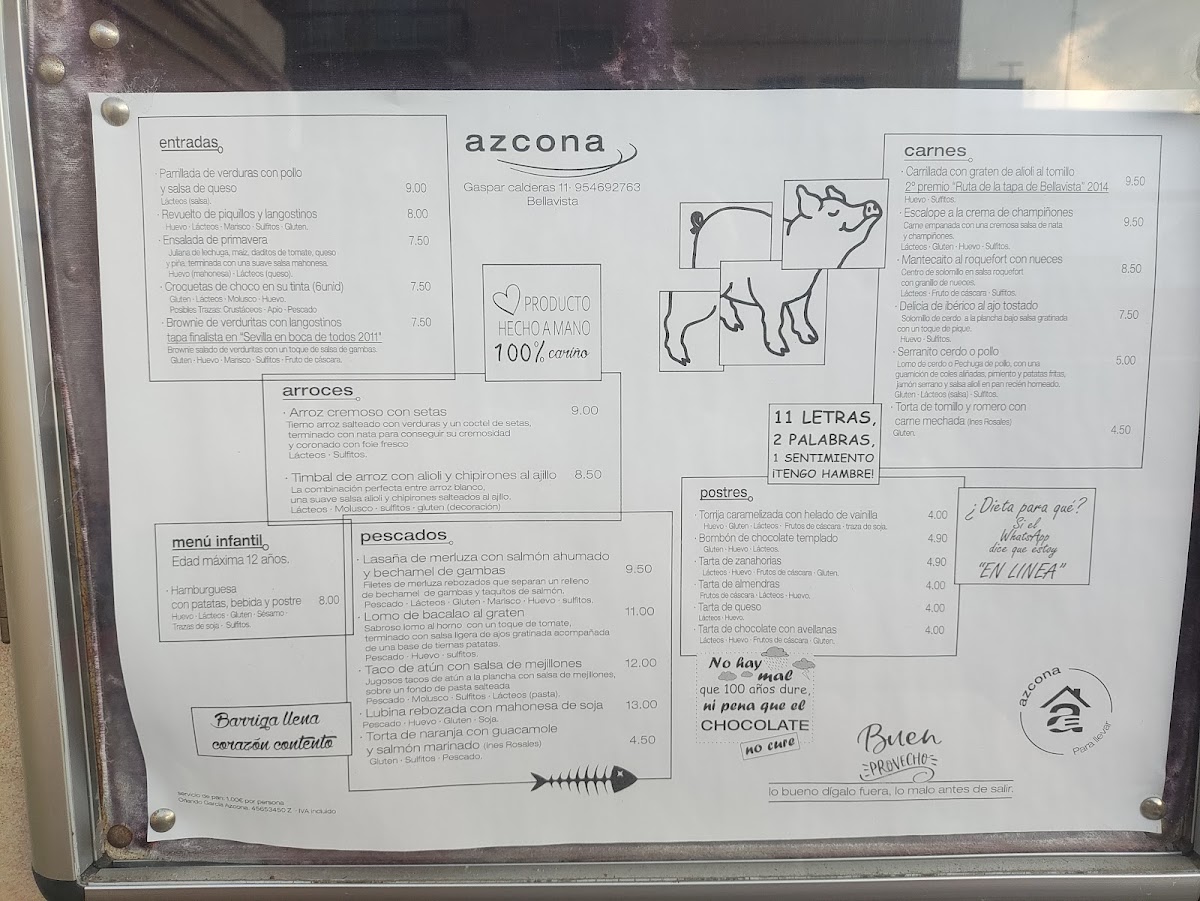 entradas
· Parrillada de verduras con pollo
y salsa de queso 9.00
Lácteos (salsa).
· Revuelto de piquillos y langostinos 8.00
Huevo · Lácteos · Marisco · Sulfitos · Gluten.
· Ensalada de primavera 7.50
Juliana de lechuga, maíz, daditos de tomate, queso
y piña, terminada con una suave salsa mahonesa.
Huevo (mahonesa) · Lácteos (queso).
· Croquetas de choco en su tinta (6unid) 7.50
Gluten · Lácteos · Molusco · Huevo.
Posibles Trazas: Crustáceos · Apio · Pescado
· Brownie de verduritas con langostinos 7.50
tapa finalista en "Sevilla en boca de todos 2011"
Brownie salado de verduritas con un toque de salsa de gambas.
Gluten · Huevo · Marisco · Sulfitos · Fruto de cáscara.
azcona
Gaspar calderas 11· 954692763
Bellavista
PRODUCTO
HECHO A MANO
100% cariño
arroces
· Arroz cremoso con setas 9.00
Tierno arroz salteado con verduras y un coctel de setas,
terminado con nata para conseguir su cremosidad
y coronado con foie fresco
Lácteos · Sulfitos.
· Timbal de arroz con alioli y chipirones al ajillo 8.50
La combinación perfecta entre arroz blanco,
una suave salsa alioli y chipirones salteados al ajillo.
Lácteos · Molusco · sulfitos · gluten (decoración)
menú infantil
Edad máxima 12 años.
· Hamburguesa
con patatas, bebida y postre 8.00
Huevo · Lácteos · Gluten · Sésamo ·
Trazas de soja · Sulfitos.
pescados
· Lasaña de merluza con salmón ahumado
y bechamel de gambas 9.50
Filetes de merluza rebozados que separan un relleno
de bechamel de gambas y taquitos de salmón.
Pescado · Lácteos · Gluten · Marisco · Huevo · sulfitos.
· Lomo de bacalao al graten 11.00
Sabroso lomo al horno con un toque de tomate,
terminado con salsa ligera de ajos gratinada acompañada
de una base de tiernas patatas.
Pescado · Huevo · sulfitos.
· Taco de atún con salsa de mejillones 12.00
Jugosos tacos de atún a la plancha con salsa de mejillones,
sobre un fondo de pasta salteada
Pescado · Molusco · Sulfitos · Lácteos (pasta).
· Lubina rebozada con mahonesa de soja 13.00
Pescado · Huevo · Gluten · Soja.
· Torta de naranja con guacamole
y salmón marinado (Ines Rosales) 4.50
Gluten · Sulfitos · Pescado.
Barriga llena
corazón contento
servicio de pan: 1,00€ por persona
Orlando García Azcona, 45653450 Z · IVA incluido
carnes
· Carrillada con graten de alioli al tomillo
2º premio "Ruta de la tapa de Bellavista" 2014 9.50
Huevo · Sulfitos.
· Escalope a la crema de champiñones 9.50
Carne empanada con una cremosa salsa de nata
y champiñones.
Lácteos · Gluten · Huevo · Sulfitos.
· Mantecaito al roquefort con nueces 8.50
Centro de solomillo en salsa roquefort
con granillo de nueces.
Lácteos · Fruto de cáscara · Sulfitos.
· Delicia de ibérico al ajo tostado 7.50
Solomillo de cerdo a la plancha bajo salsa gratinada
con un toque de pique.
Huevo · Sulfitos.
· Serranito cerdo o pollo 5.00
Lomo de cerdo o Pechuga de pollo, con una
guarnición de coles aliñadas, pimiento y patatas fritas,
jamón serrano y salsa alioli en pan recién horneado.
Gluten · Lácteos (salsa) · Sulfitos.
· Torta de tomillo y romero con
carne mechada (Ines Rosales) 4.50
Gluten.
11 LETRAS,
2 PALABRAS,
1 SENTIMIENTO
¡TENGO HAMBRE!
postres
· Torrija caramelizada con helado de vainilla 4.00
Huevo · Gluten · Lácteos · Frutos de cáscara · traza de soja.
· Bombón de chocolate templado 4.90
Gluten · Huevo · Lácteos.
· Tarta de zanahorias 4.90
Lácteos · Huevo · Frutos de cáscara · Gluten.
· Tarta de almendras 4.00
Frutos de cáscara · Lácteos · Huevo.
· Tarta de queso 4.00
Lácteos · Huevo.
· Tarta de chocolate con avellanas 4.00
Lácteos · Huevo · Frutos de cáscara · Gluten.
¿Dieta para qué?
Si el
WhatsApp
dice que estoy
"EN LINEA"
No hay
mal
que 100 años dure,
ni pena que el
CHOCOLATE
no cure
Buen
PROVECHO
lo bueno dígalo fuera, lo malo antes de salir.
azcona
Para llevar